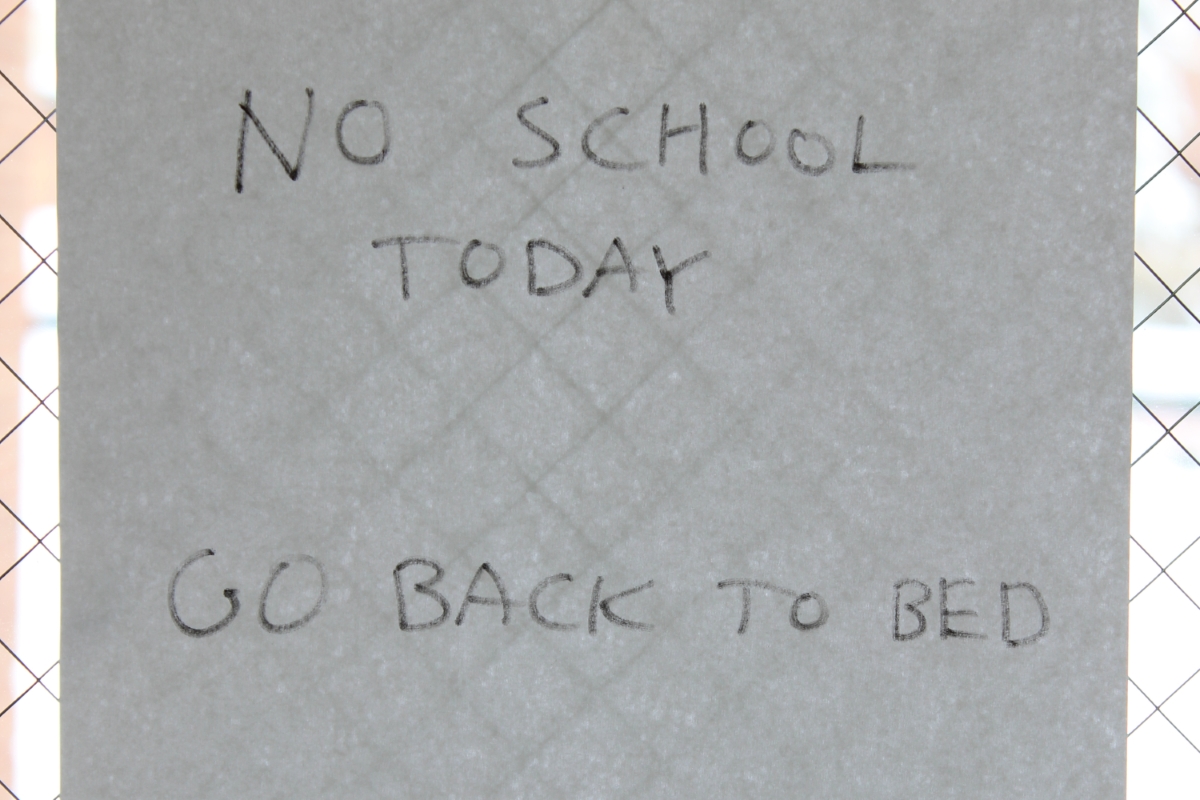 NO SCHOOL
TODAY
GO BACK TO BED